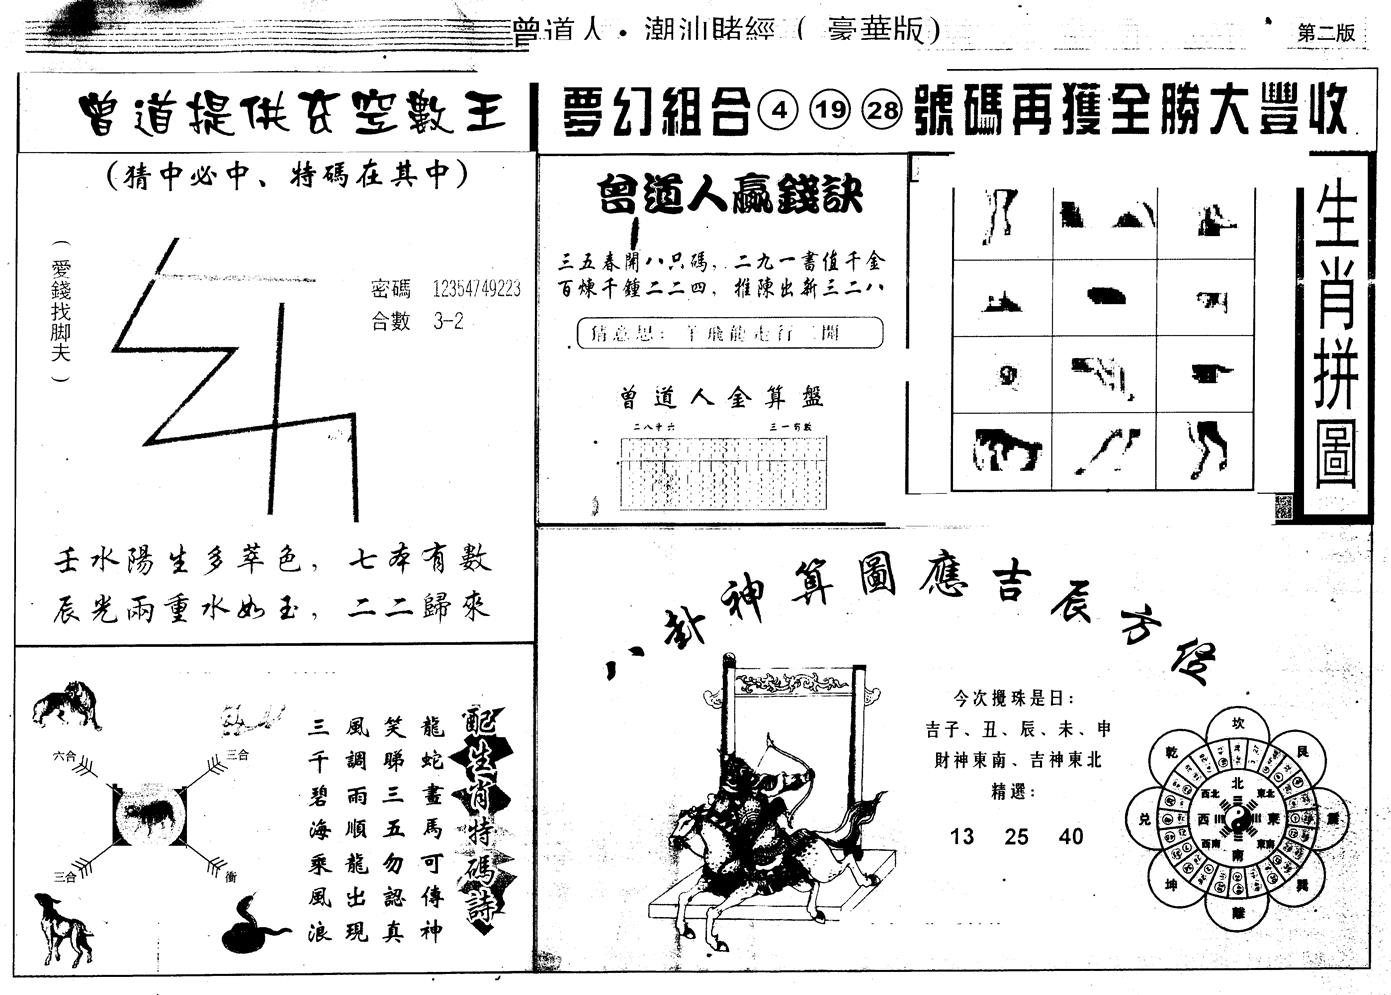 曾道人·潮汕賭經(豪華版)
第二版
曾道提供玄空數王
夢幻組合④⑲㉘號碼再獲全勝大豐收
(猜中必中、特碼在其中)
(愛錢找脚夫)
密碼 12354749223
合數 3-2
壬水陽生多萃色，七本有數
辰光兩重水如玉，二二歸來
曾道人贏錢訣
三五春開八只碼，二九一書值千金
百煉千鍾二二四，推陳出新三二八
猜意思：羊飛龍走行二開
曾道人金算盤
二八中六
三一有數
生肖拼圖
配生肖特碼詩
龍蛇畫馬可傳神
笑睇三五勿認真
風調雨順龍出現
三千碧海乘風浪
六合
三合
三合
衝
八卦神算圖應吉辰方位
今次攪珠是日：
吉子、丑、辰、未、申
財神東南、吉神東北
精選：
13 25 40
坎
乾
艮
兌
震
坤
巽
離
北
西北
東北
西
東
西南
東南
南